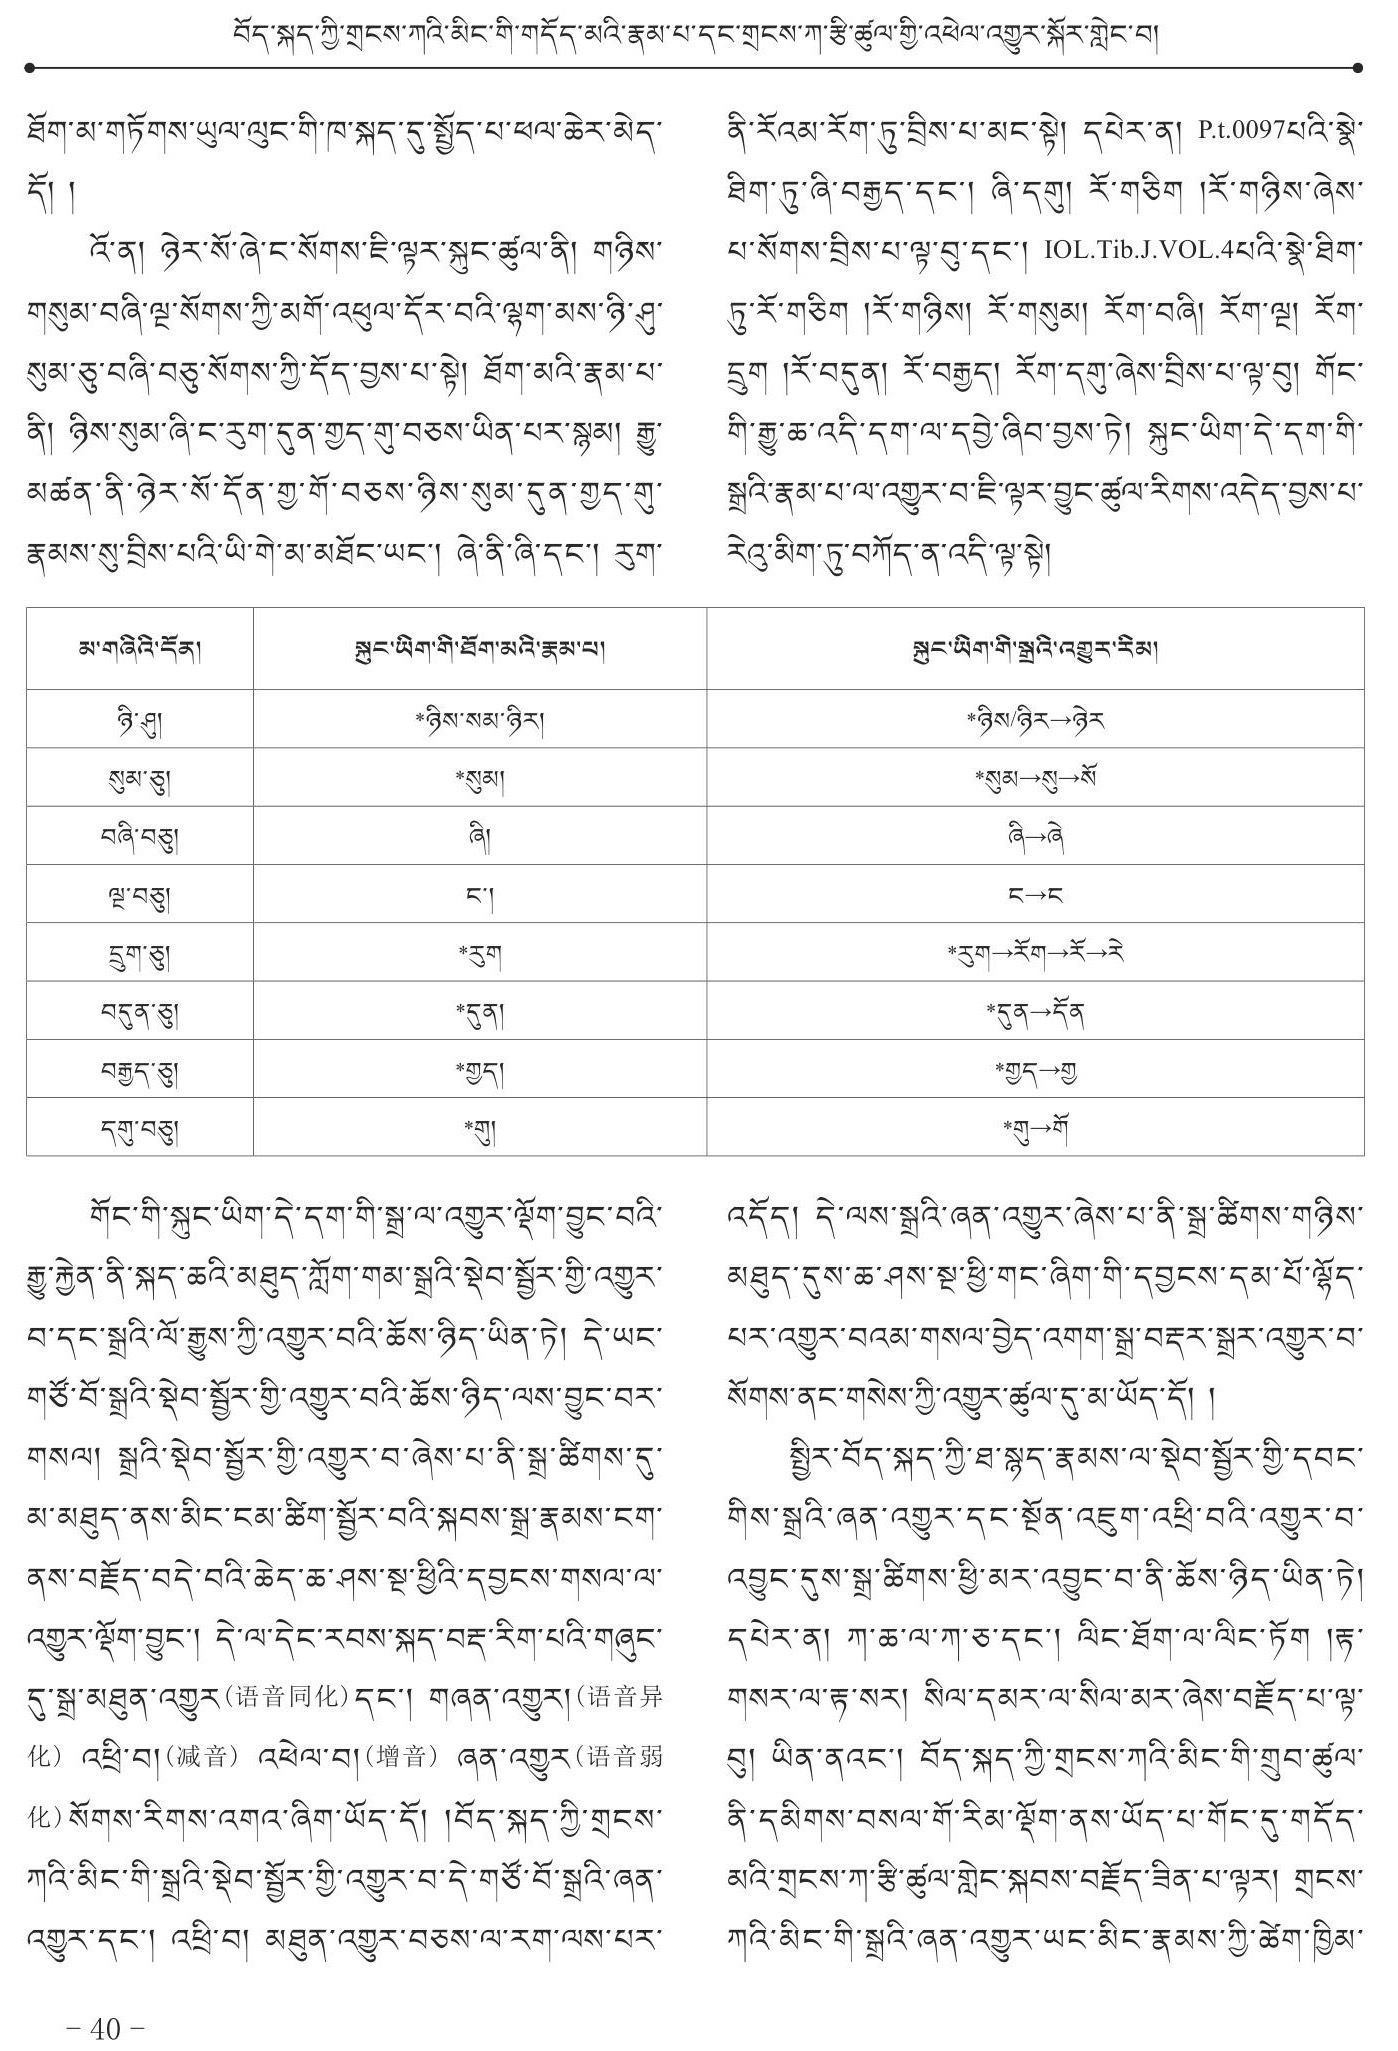 བོད་སྐད་ཀྱི་གྲངས་ཀའི་མིང་གི་གདོད་མའི་རྣམ་པ་དང་གྲངས་ཀ་རྩི་ཚུལ་གྱི་འཕེལ་འགྱུར་སྐོར་གླེང་བ།
ཐོག་མ་གཏོགས་ཡུལ་ལུང་གི་ཁ་སྐད་དུ་སྤྱོད་པ་ཕལ་ཆེར་མེད་
དོ། །
འོ་ན། ཉེར་སོ་ཞེ་ང་སོགས་ཇི་ལྟར་སྐུང་ཚུལ་ནི། གཉིས་
གསུམ་བཞི་ལྔ་སོགས་ཀྱི་མགོ་འཕུལ་དོར་བའི་ལྷག་མས་ཉི་ཤུ་
སུམ་ཅུ་བཞི་བཅུ་སོགས་ཀྱི་དོད་བྱས་པ་སྟེ། ཐོག་མའི་རྣམ་པ་
ནི། ཉིས་སུམ་ཞི་ང་རུག་དུན་གྱད་གུ་བཅས་ཡིན་པར་སྙམ། རྒྱུ་
མཚན་ནི་ཉེར་སོ་དོན་གྱ་གོ་བཅས་ཉིས་སུམ་དུན་གྱད་གུ་
རྣམས་སུ་བྲིས་པའི་ཡི་གེ་མ་མཐོང་ཡང་། ཞེ་ནི་ཞི་དང་། རུག་
ནི་རོའམ་རོག་ཏུ་བྲིས་པ་མང་སྟེ། དཔེར་ན། P.t.0097པའི་སྣེ་
ཐིག་ཏུ་ཞི་བརྒྱད་དང་། ཞི་དགུ། རོ་གཅིག །རོ་གཉིས་ཞེས་
པ་སོགས་བྲིས་པ་ལྟ་བུ་དང་། IOL.Tib.J.VOL.4པའི་སྣེ་ཐིག་
ཏུ་རོ་གཅིག །རོ་གཉིས། རོ་གསུམ། རོག་བཞི། རོག་ལྔ། རོག་
དྲུག །རོ་བདུན། རོ་བརྒྱད། རོག་དགུ་ཞེས་བྲིས་པ་ལྟ་བུ། གོང་
གི་རྒྱུ་ཆ་འདི་དག་ལ་དབྱེ་ཞིབ་བྱས་ཏེ། སྐུང་ཡིག་དེ་དག་གི་
སྒྲའི་རྣམ་པ་ལ་འགྱུར་བ་ཇི་ལྟར་བྱུང་ཚུལ་རིགས་འདེད་བྱས་པ་
རེའུ་མིག་ཏུ་བཀོད་ན་འདི་ལྟ་སྟེ།
མ་གཞིའི་དོན། སྐུང་ཡིག་གི་ཐོག་མའི་རྣམ་པ། སྐུང་ཡིག་གི་སྒྲའི་འགྱུར་རིམ།
ཉི་ཤུ། *ཉིས་སམ་ཉིར། *ཉིས/ཉིར→ཉེར
སུམ་ཅུ། *སུམ། *སུམ→སུ→སོ
བཞི་བཅུ། ཞི། ཞི→ཞེ
ལྔ་བཅུ། ང་། ང→ང
དྲུག་ཅུ། *རུག *རུག→རོག→རོ→རེ
བདུན་ཅུ། *དུན། *དུན→དོན
བརྒྱད་ཅུ། *གྱད། *གྱད→གྱ
དགུ་བཅུ། *གུ། *གུ→གོ
གོང་གི་སྐུང་ཡིག་དེ་དག་གི་སྒྲ་ལ་འགྱུར་ལྡོག་བྱུང་བའི་
རྒྱུ་རྐྱེན་ནི་སྐད་ཆའི་མཐུད་ཀློག་གམ་སྒྲའི་སྡེབ་སྦྱོར་གྱི་འགྱུར་
བ་དང་སྒྲའི་ལོ་རྒྱུས་ཀྱི་འགྱུར་བའི་ཆོས་ཉིད་ཡིན་ཏེ། དེ་ཡང་
གཙོ་བོ་སྒྲའི་སྡེབ་སྦྱོར་གྱི་འགྱུར་བའི་ཆོས་ཉིད་ལས་བྱུང་བར་
གསལ། སྒྲའི་སྡེབ་སྦྱོར་གྱི་འགྱུར་བ་ཞེས་པ་ནི་སྒྲ་ཚིགས་དུ་
མ་མཐུད་ནས་མིང་ངམ་ཚིག་སྦྱོར་བའི་སྐབས་སྒྲ་རྣམས་ངག་
ནས་བརྗོད་བདེ་བའི་ཆེད་ཆ་ཤས་སྔ་ཕྱིའི་དབྱངས་གསལ་ལ་
འགྱུར་ལྡོག་བྱུང་། དེ་ལ་དེང་རབས་སྐད་བརྡ་རིག་པའི་གཞུང་
དུ་སྒྲ་མཐུན་འགྱུར(语音同化)དང་། གཞན་འགྱུར།(语音异
化) འཕྲི་བ།(减音) འཕེལ་བ།(增音) ཞན་འགྱུར(语音弱
化)སོགས་རིགས་འགའ་ཞིག་ཡོད་དོ། །བོད་སྐད་ཀྱི་གྲངས་
ཀའི་མིང་གི་སྒྲའི་སྡེབ་སྦྱོར་གྱི་འགྱུར་བ་དེ་གཙོ་བོ་སྒྲའི་ཞན་
འགྱུར་དང་། འཕྲི་བ། མཐུན་འགྱུར་བཅས་ལ་རག་ལས་པར་
འདོད། དེ་ལས་སྒྲའི་ཞན་འགྱུར་ཞེས་པ་ནི་སྒྲ་ཚིགས་གཉིས་
མཐུད་དུས་ཆ་ཤས་སྔ་ཕྱི་གང་ཞིག་གི་དབྱངས་དམ་པོ་ལྷོད་
པར་འགྱུར་བའམ་གསལ་བྱེད་འགག་སྒྲ་བརྡར་སྒྲར་འགྱུར་བ་
སོགས་ནང་གསེས་ཀྱི་འགྱུར་ཚུལ་དུ་མ་ཡོད་དོ། །
སྤྱིར་བོད་སྐད་ཀྱི་ཐ་སྙད་རྣམས་ལ་སྡེབ་སྦྱོར་གྱི་དབང་
གིས་སྒྲའི་ཞན་འགྱུར་དང་སྔོན་འཇུག་འཕྲི་བའི་འགྱུར་བ་
འབྱུང་དུས་སྒྲ་ཚིགས་ཕྱི་མར་འབྱུང་བ་ནི་ཆོས་ཉིད་ཡིན་ཏེ།
དཔེར་ན། ཀ་ཆ་ལ་ཀ་ཅ་དང་། ལིང་ཐོག་ལ་ལིང་ཏོག །རྟ་
གསར་ལ་རྟ་སར། སིལ་དམར་ལ་སིལ་མར་ཞེས་བརྗོད་པ་ལྟ་
བུ། ཡིན་ནའང་། བོད་སྐད་ཀྱི་གྲངས་ཀའི་མིང་གི་གྲུབ་ཚུལ་
ནི་དམིགས་བསལ་གོ་རིམ་ལྡོག་ནས་ཡོད་པ་གོང་དུ་གདོད་
མའི་གྲངས་ཀ་རྩི་ཚུལ་གླེང་སྐབས་བརྗོད་ཟིན་པ་ལྟར། གྲངས་
ཀའི་མིང་གི་སྒྲའི་ཞན་འགྱུར་ཡང་མིང་རྣམས་ཀྱི་ཚེག་ཁྱིམ་
- 40 -